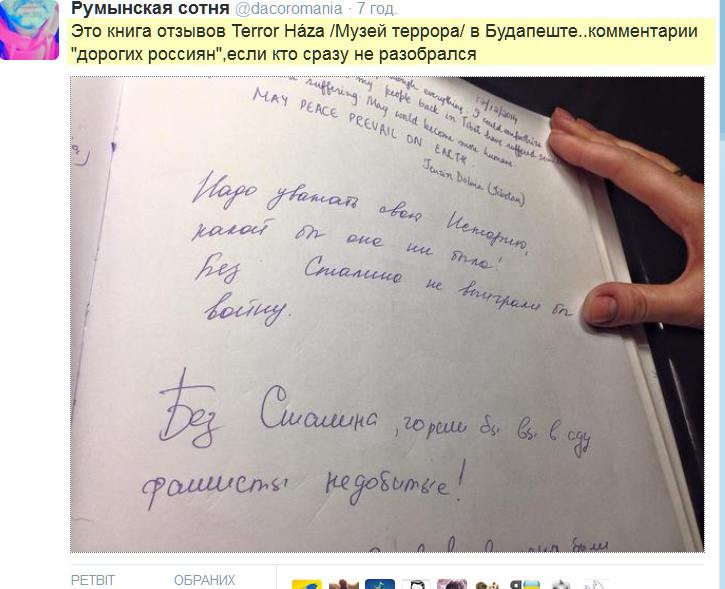 Румынская сотня @dacoromania · 7 год.
Это книга отзывов Terror Háza /Музей террора/ в Будапеште..комментарии
"дорогих россиян",если кто сразу не разобрался
everything. I could empathize
my people back in Tibet have suffered
suffering. May world become more humane.
MAY PEACE PREVAIL ON EARTH.
Надо уважать свою Историю,
какой бы она ни была!
Без Сталина не выиграли бы
войну.
Без Сталина, горели бы вы в аду
фашисты недобитые!
были
РЕТВІТ ОБРАНИХ